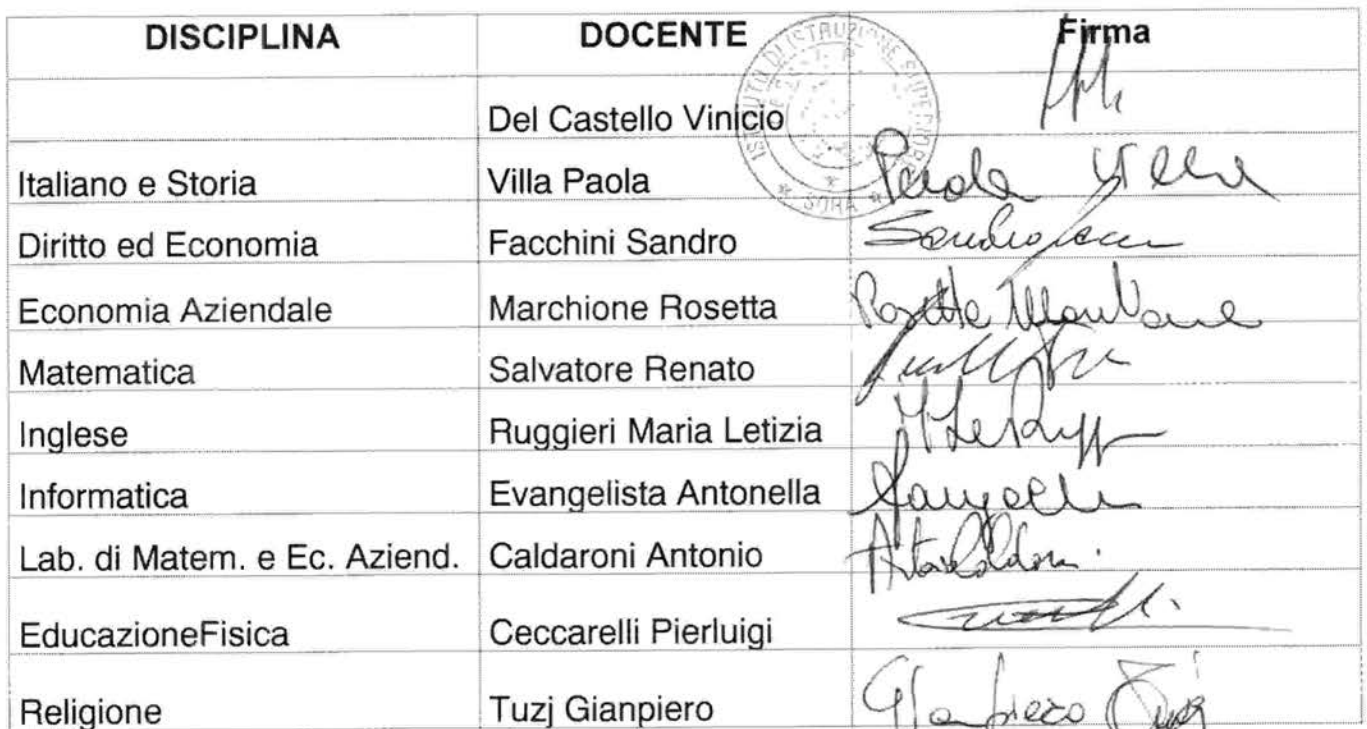 DISCIPLINA DOCENTE Firma
Del Castello Vinicio
Italiano e Storia Villa Paola Paola Villa
Diritto ed Economia Facchini Sandro Sandro
Economia Aziendale Marchione Rosetta Rosetta Marchione
Matematica Salvatore Renato
Inglese Ruggieri Maria Letizia
Informatica Evangelista Antonella
Lab. di Matem. e Ec. Aziend. Caldaroni Antonio
EducazioneFisica Ceccarelli Pierluigi
Religione Tuzj Gianpiero Gianpiero Tuzj
ISTITUTO DI ISTRUZIONE SUPERIORE
* SORA *